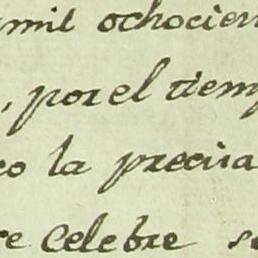 mil ochocien
, por el tiemp
co la precisa
re celebre se